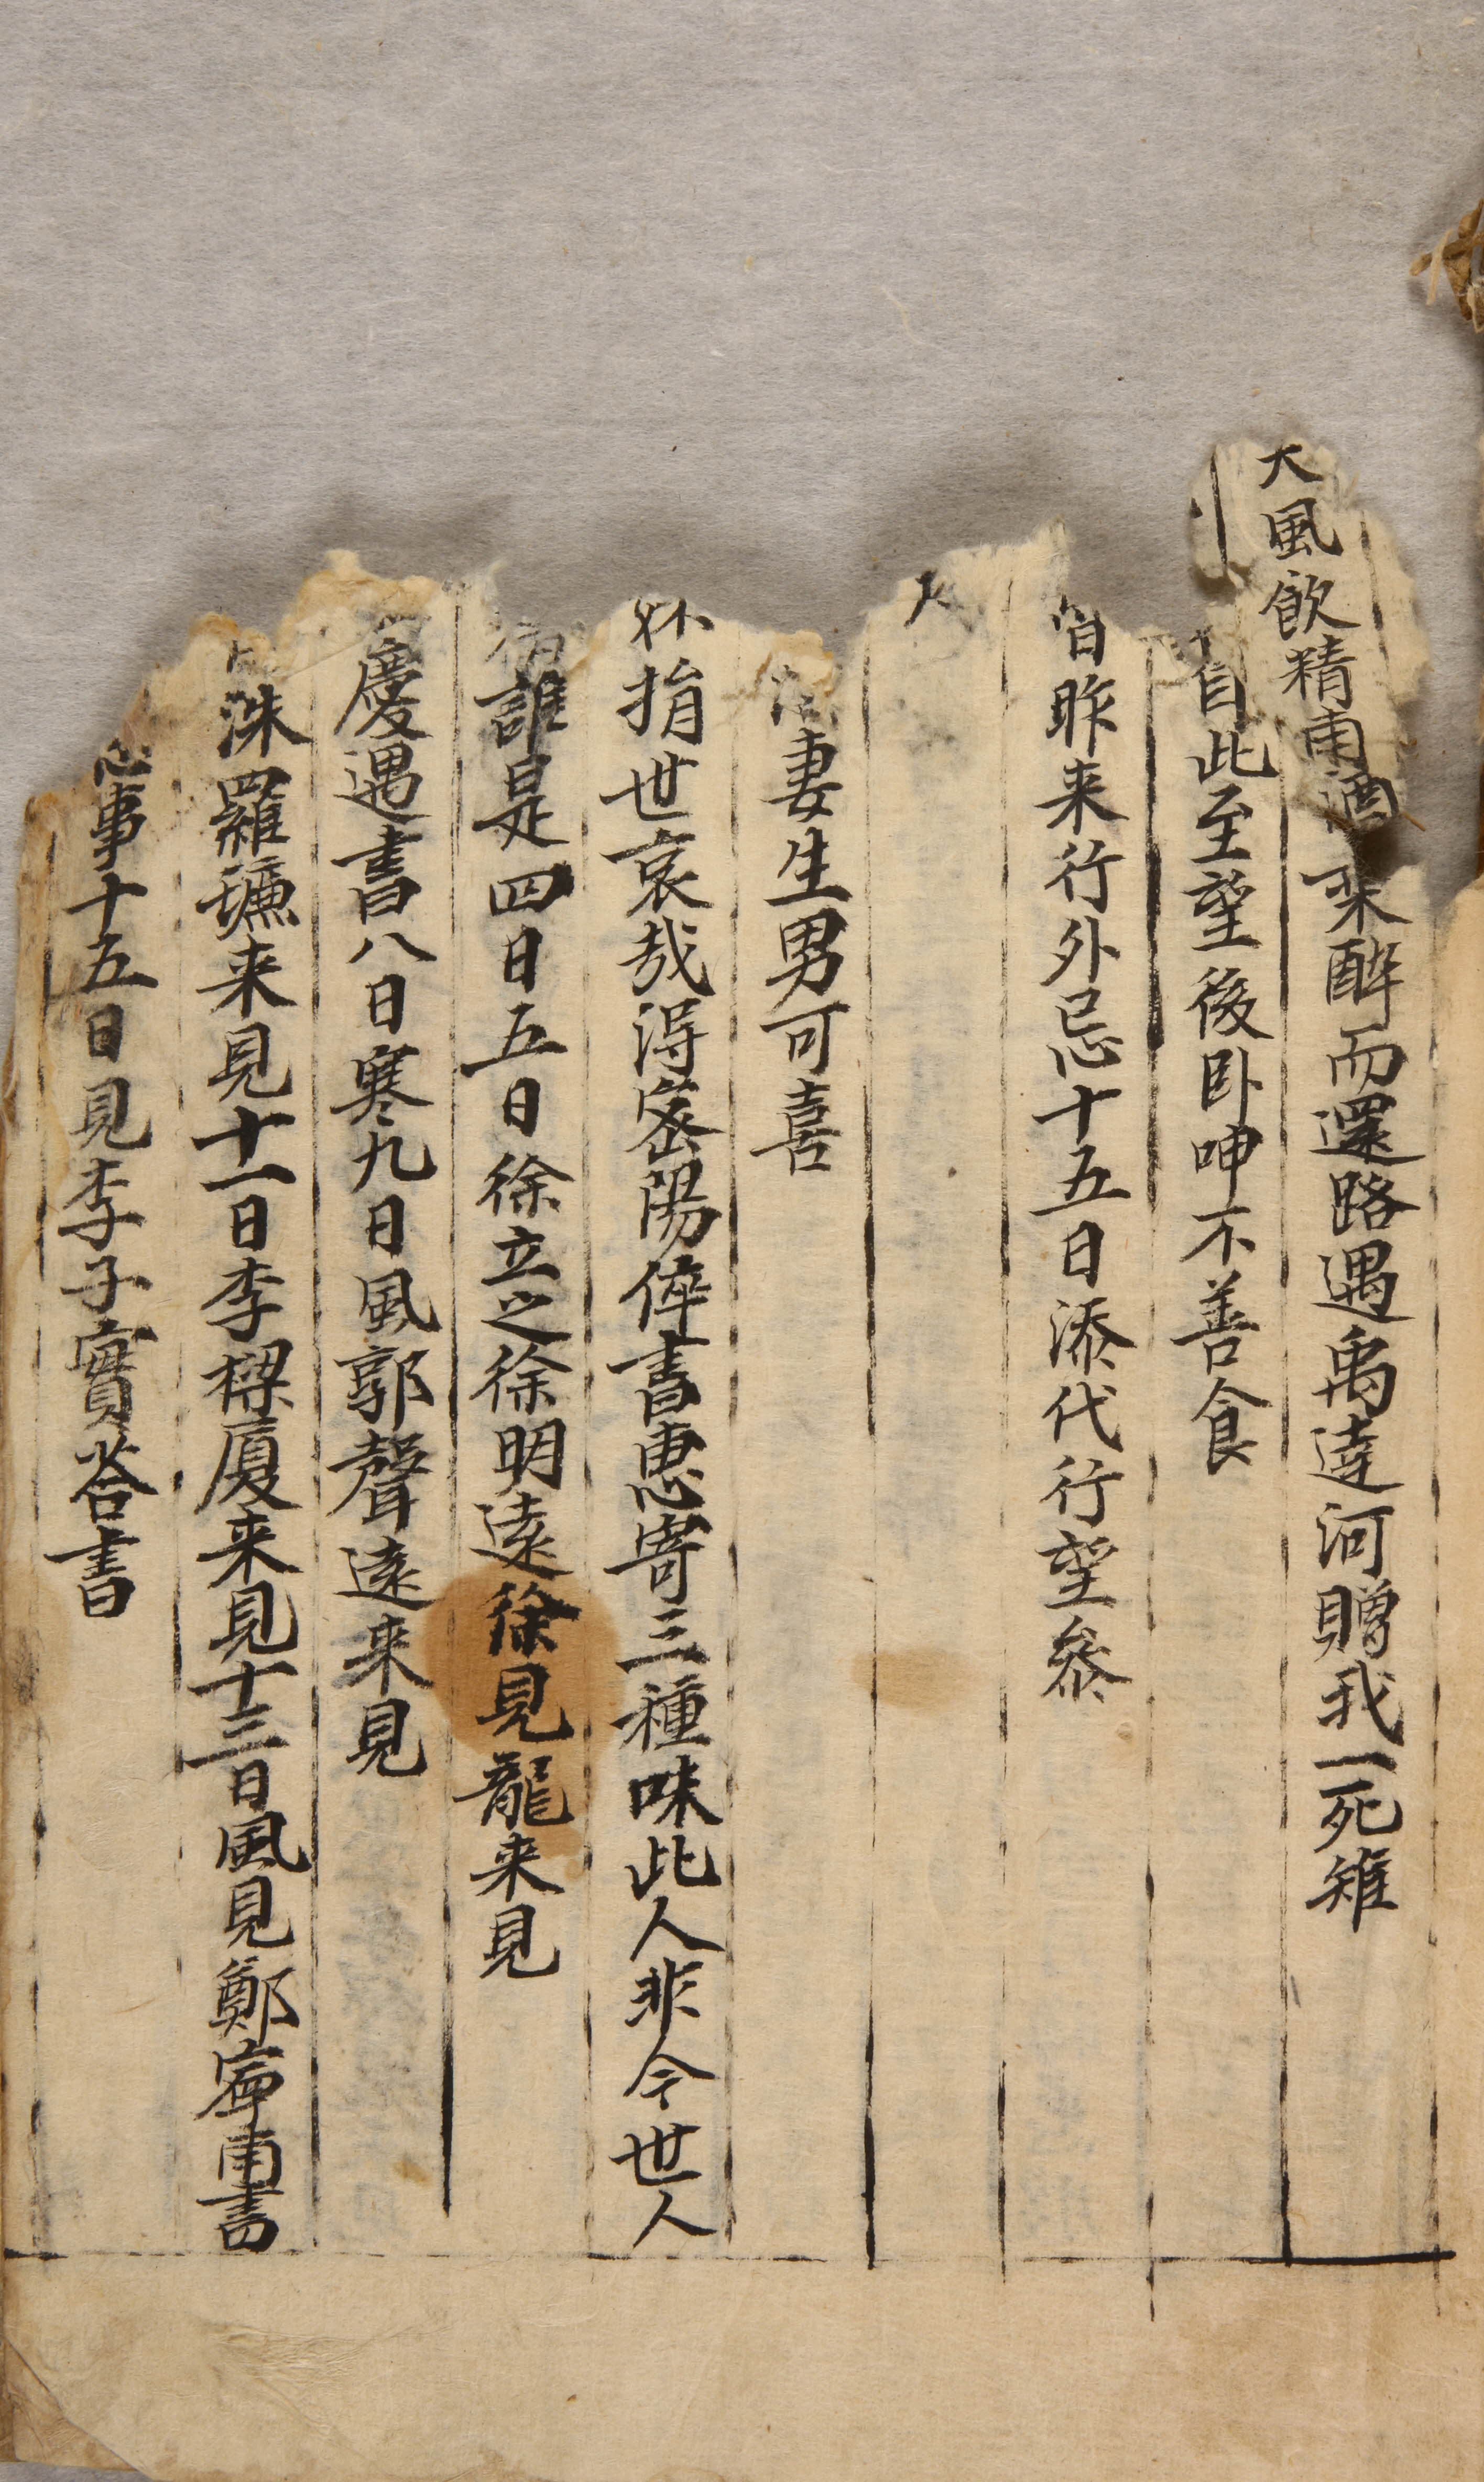 大風飲精甫酒乘醉而還路遇禹達河贈我一死雉
自此至望後卧呻不善食
日昨来行外忌十五日添代行望叅
妻生男可喜
捐世哀哉淂密陽倅書惠寄三種味此人非今世人
誰是四日五日徐立之徐明遠徐見龍来見
慶遇書八日寒九日風郭聲遠来見
洙羅㻿来見十一日李樑厦来見十三日風見鄭寧甫書
忌事十五日見李子實答書